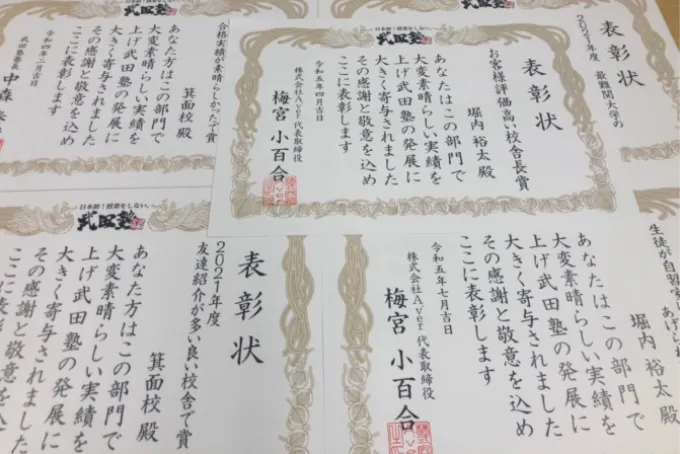 日本初!授業をしない。
武田塾
表彰状
お客様評価高い校舎長賞
堀内 裕太 殿
あなたはこの部門で
大変素晴らしい実績を
上げ武田塾の発展に
大きく寄与されました
その感謝と敬意を込め
ここに表彰します
令和五年四月吉日
株式会社A.ver 代表取締役
梅宮 小百合
合格実績が素晴らしかったで賞
箕面校 殿
あなた方はこの部門で
大変素晴らしい実績を
上げ武田塾の発展に
大きく寄与されました
その感謝と敬意を込め
ここに表彰します
令和四年二月吉日
武田塾塾長
中森
表彰状
最難関大学の
日本初!授業をしない。
武田塾
表彰状
2021年度
友達紹介が多い良い校舎で賞
箕面校 殿
あなた方はこの部門で
大変素晴らしい実績を
上げ武田塾の発展に
大きく寄与されました
その感謝と敬意を込め
ここに表彰し
生徒が自習室に
堀内 裕太 殿
あなたはこの部門で
大変素晴らしい実績を
上げ武田塾の発展に
大きく寄与されました
その感謝と敬意を込め
ここに表彰します
令和五年七月吉日
株式会社A.ver 代表取締役
梅宮 小百合